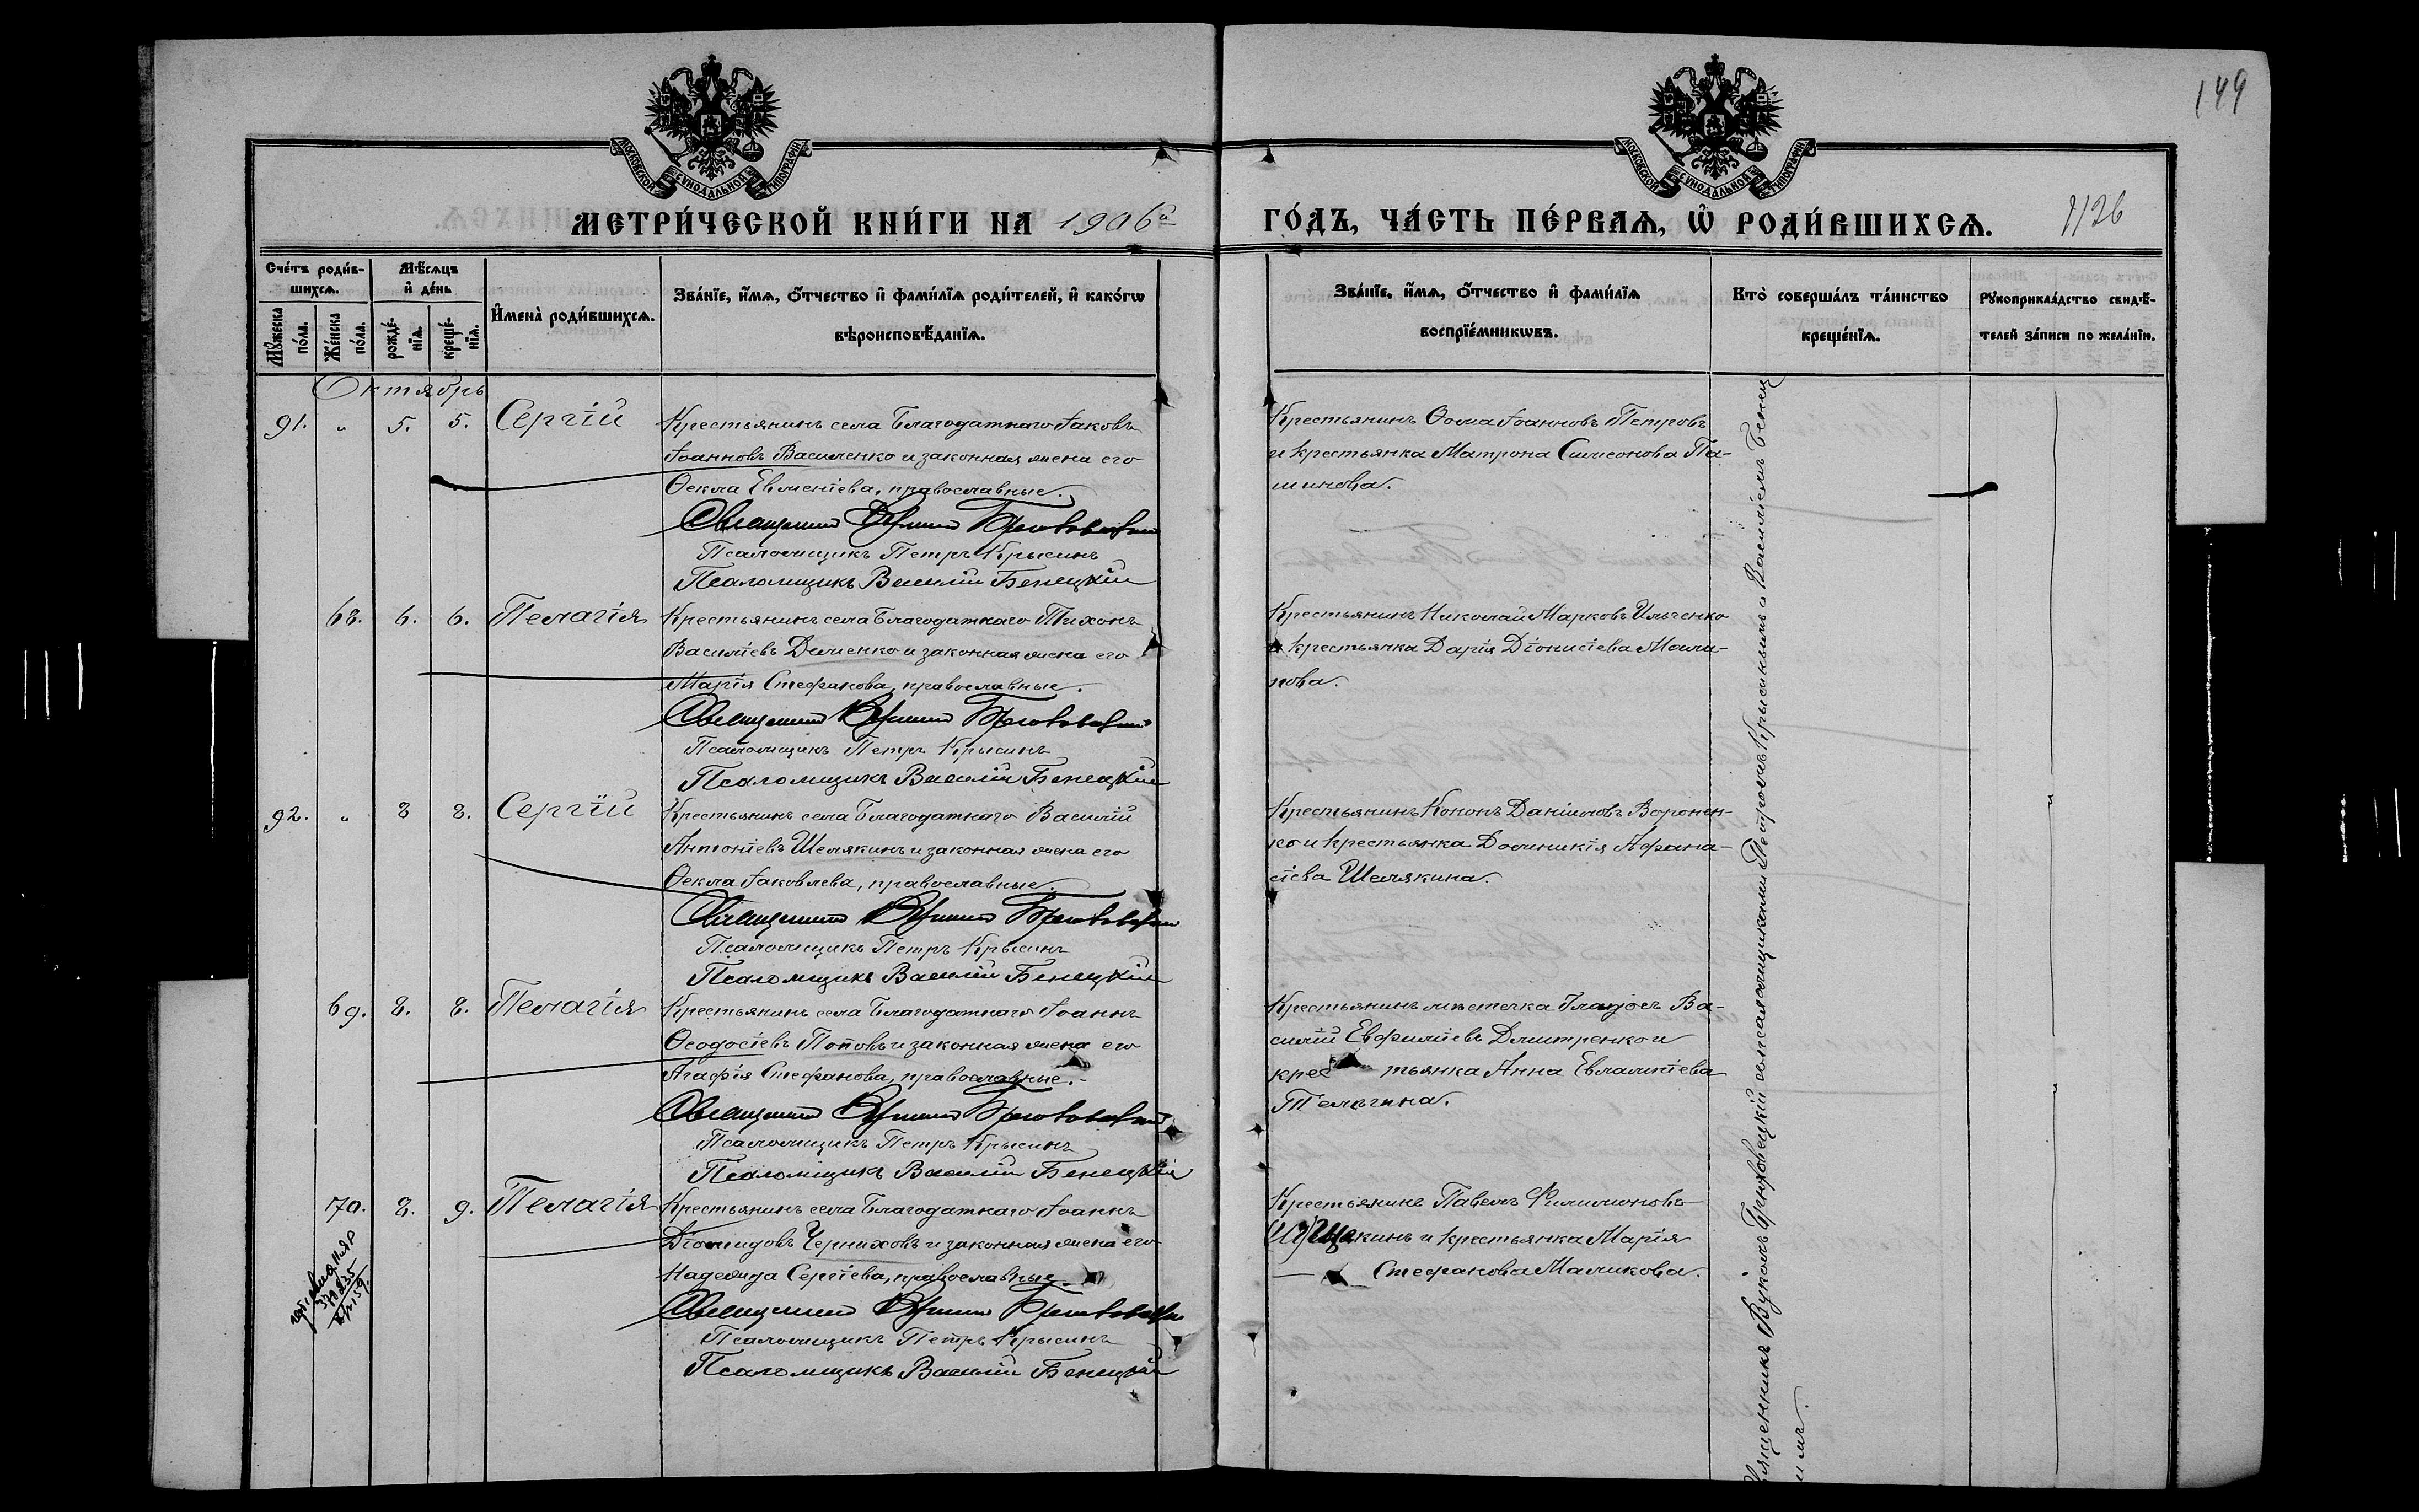 149
МОСКОВСКОЙ СѴНОДАЛЬНОЙ ТИПОГРАФІИ
МОСКОВСКОЙ СѴНОДАЛЬНОЙ ТИПОГРАФІИ
МЕТРИ́ЧЕСКОЙ КНИ́ГИ НА 1906й ГО́ДЪ, ЧА́СТЬ ПЕ́РВАѦ, Ѡ҆ РОДИ́ВШИХСѦ. 1126
Сче́тъ роди́в-
шихсѧ.
Мꙋ́жеска
по́ла.
Же́нска
по́ла.
Мѣ́сѧцъ
и҆ де́нь
рожде́-
нїѧ.
креще́-
нїѧ.
И҆мена̀ роди́вшихсѧ.
Зва́нїе, и҆́мѧ, ѻ҆́тчество и҆ фами́лїѧ роди́телей, и҆ како́гѡ
вѣроисповѣ́данїѧ.
Зва́нїе, и҆́мѧ, ѻ҆́тчество и҆ фами́лїѧ
воспрїе́мникѡвъ.
Кто̀ соверша́лъ та́инство
креще́нїѧ.
Рꙋкоприкла́дство свидѣ́-
телей за́писи по жела́нїю.
Октябрь
91. " 5. 5. Сергій
Крестьянинъ села Благодатнаго Іаковъ
Іоанновъ Василенко и законная жена его
Ѳекла Евменіева, православные.
Священникъ Вуколъ
Псаломщикъ Петръ Крысинъ
Псаломщикъ Василій Бенецкій
Крестьянинъ Ѳома Іоанновъ Петровъ
и крестьянка Матрона Симеонова Па-
шинова.
68. 6. 6. Пелагія
Крестьянинъ села Благодатнаго Тихонъ
Василіевъ Деменко и законная жена его
Марія Стефанова, православные.
Священникъ Вуколъ
Псаломщикъ Петръ Крысинъ
Псаломщикъ Василій Бенецкій
Крестьянинъ Николай Марковъ Ильченко
и крестьянка Дарія Діонисіева
нова.
92. " 8 8. Сергій
Крестьянинъ села Благодатнаго Василій
Антоніевъ Шелякинъ и законная жена его
Ѳекла Іаковлева, православные.
Священникъ Вуколъ
Псаломщикъ Петръ Крысинъ
Псаломщикъ Василій Бенецкій
Крестьянинъ Кононъ Даніиловъ Воронен-
ко и крестьянка Домникія Афана-
сіева Шелякина.
69. 8. 8. Пелагія
Крестьянинъ села Благодатнаго Іоаннъ
Ѳеодосіевъ Поповъ и законная жена его
Агафія Стефанова, православные.
Священникъ Вуколъ
Псаломщикъ Петръ Крысинъ
Псаломщикъ Василій Бенецкій
Крестьянинъ мѣстечка Ва-
силій Евфиміевъ Дмитренко и
крестьянка Анна Евлампіева
Тельгина.
70. 8. 9. Пелагія
Крестьянинъ села Благодатнаго Іоаннъ
Діомидовъ Черниховъ и законная жена его
Надежда Сергіева, православные
Священникъ Вуколъ
Псаломщикъ Петръ Крысинъ
Псаломщикъ Василій Бенецкій
Крестьянинъ Павелъ Филимоновъ
и крестьянка Марія
Стефанова Маликова.
Священникъ Вуколъ съ псаломщиками Петромъ Крысинымъ и Василіемъ Бенец
кимъ.